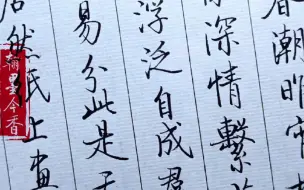 潮明
深情繫
浮泛自成君
易分此是
然纸上画
翰墨今香